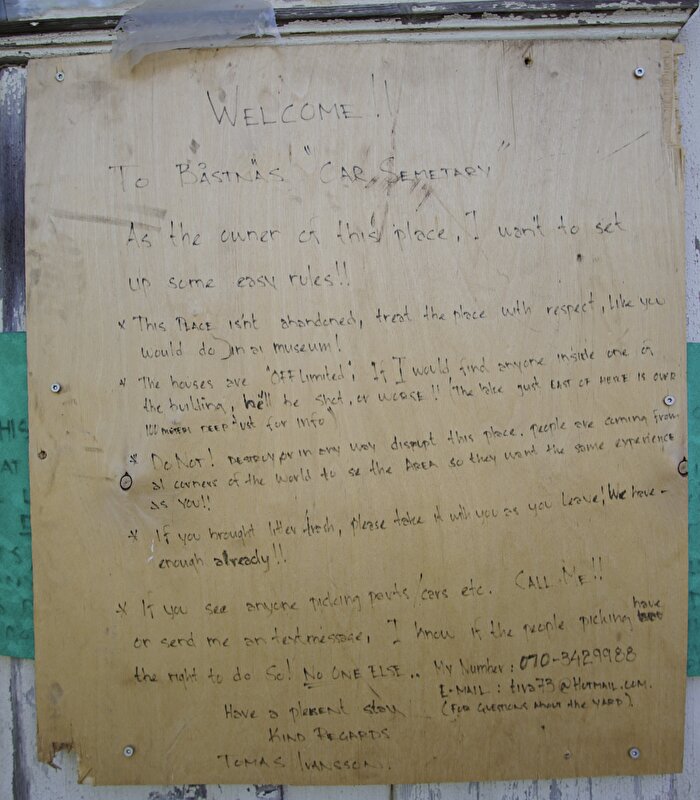 WELCOME!!
TO BÅSTNÄS "CAR SEMETARY"
As the owner of this place, I want to set
up some easy rules!!
* This PLACE isn't abandoned, treat the place with respect, like you
would do in a museum!
* The houses are "OFF Limited", If I would find anyone inside one of
the building, he'll be shot, or WORSE!! The lake just EAST OF HERE IS OVER
100 METERS DEEP Just for info
* DO NOT! DESTROY or in any way disrupt this place, people are coming from
al corners of the world to se the AREA so they want the same experience
as YOU!!
* If you brought litter trash, please take it with you as you leave! We have -
enough already!!
* If you see anyone picking parts, cars etc. CALL ME!!
or send me an textmessage, I know if the people picking have
the right to do So! NO ONE ELSE.. My Number: 070-3429988
E-MAIL: tiva73@HOTMAIL.COM.
(FOR QUESTIONS ABOUT the YARD).
Have a plesent stay
KIND REGARDS
TOMAS IVANSSON.
HIS
AT